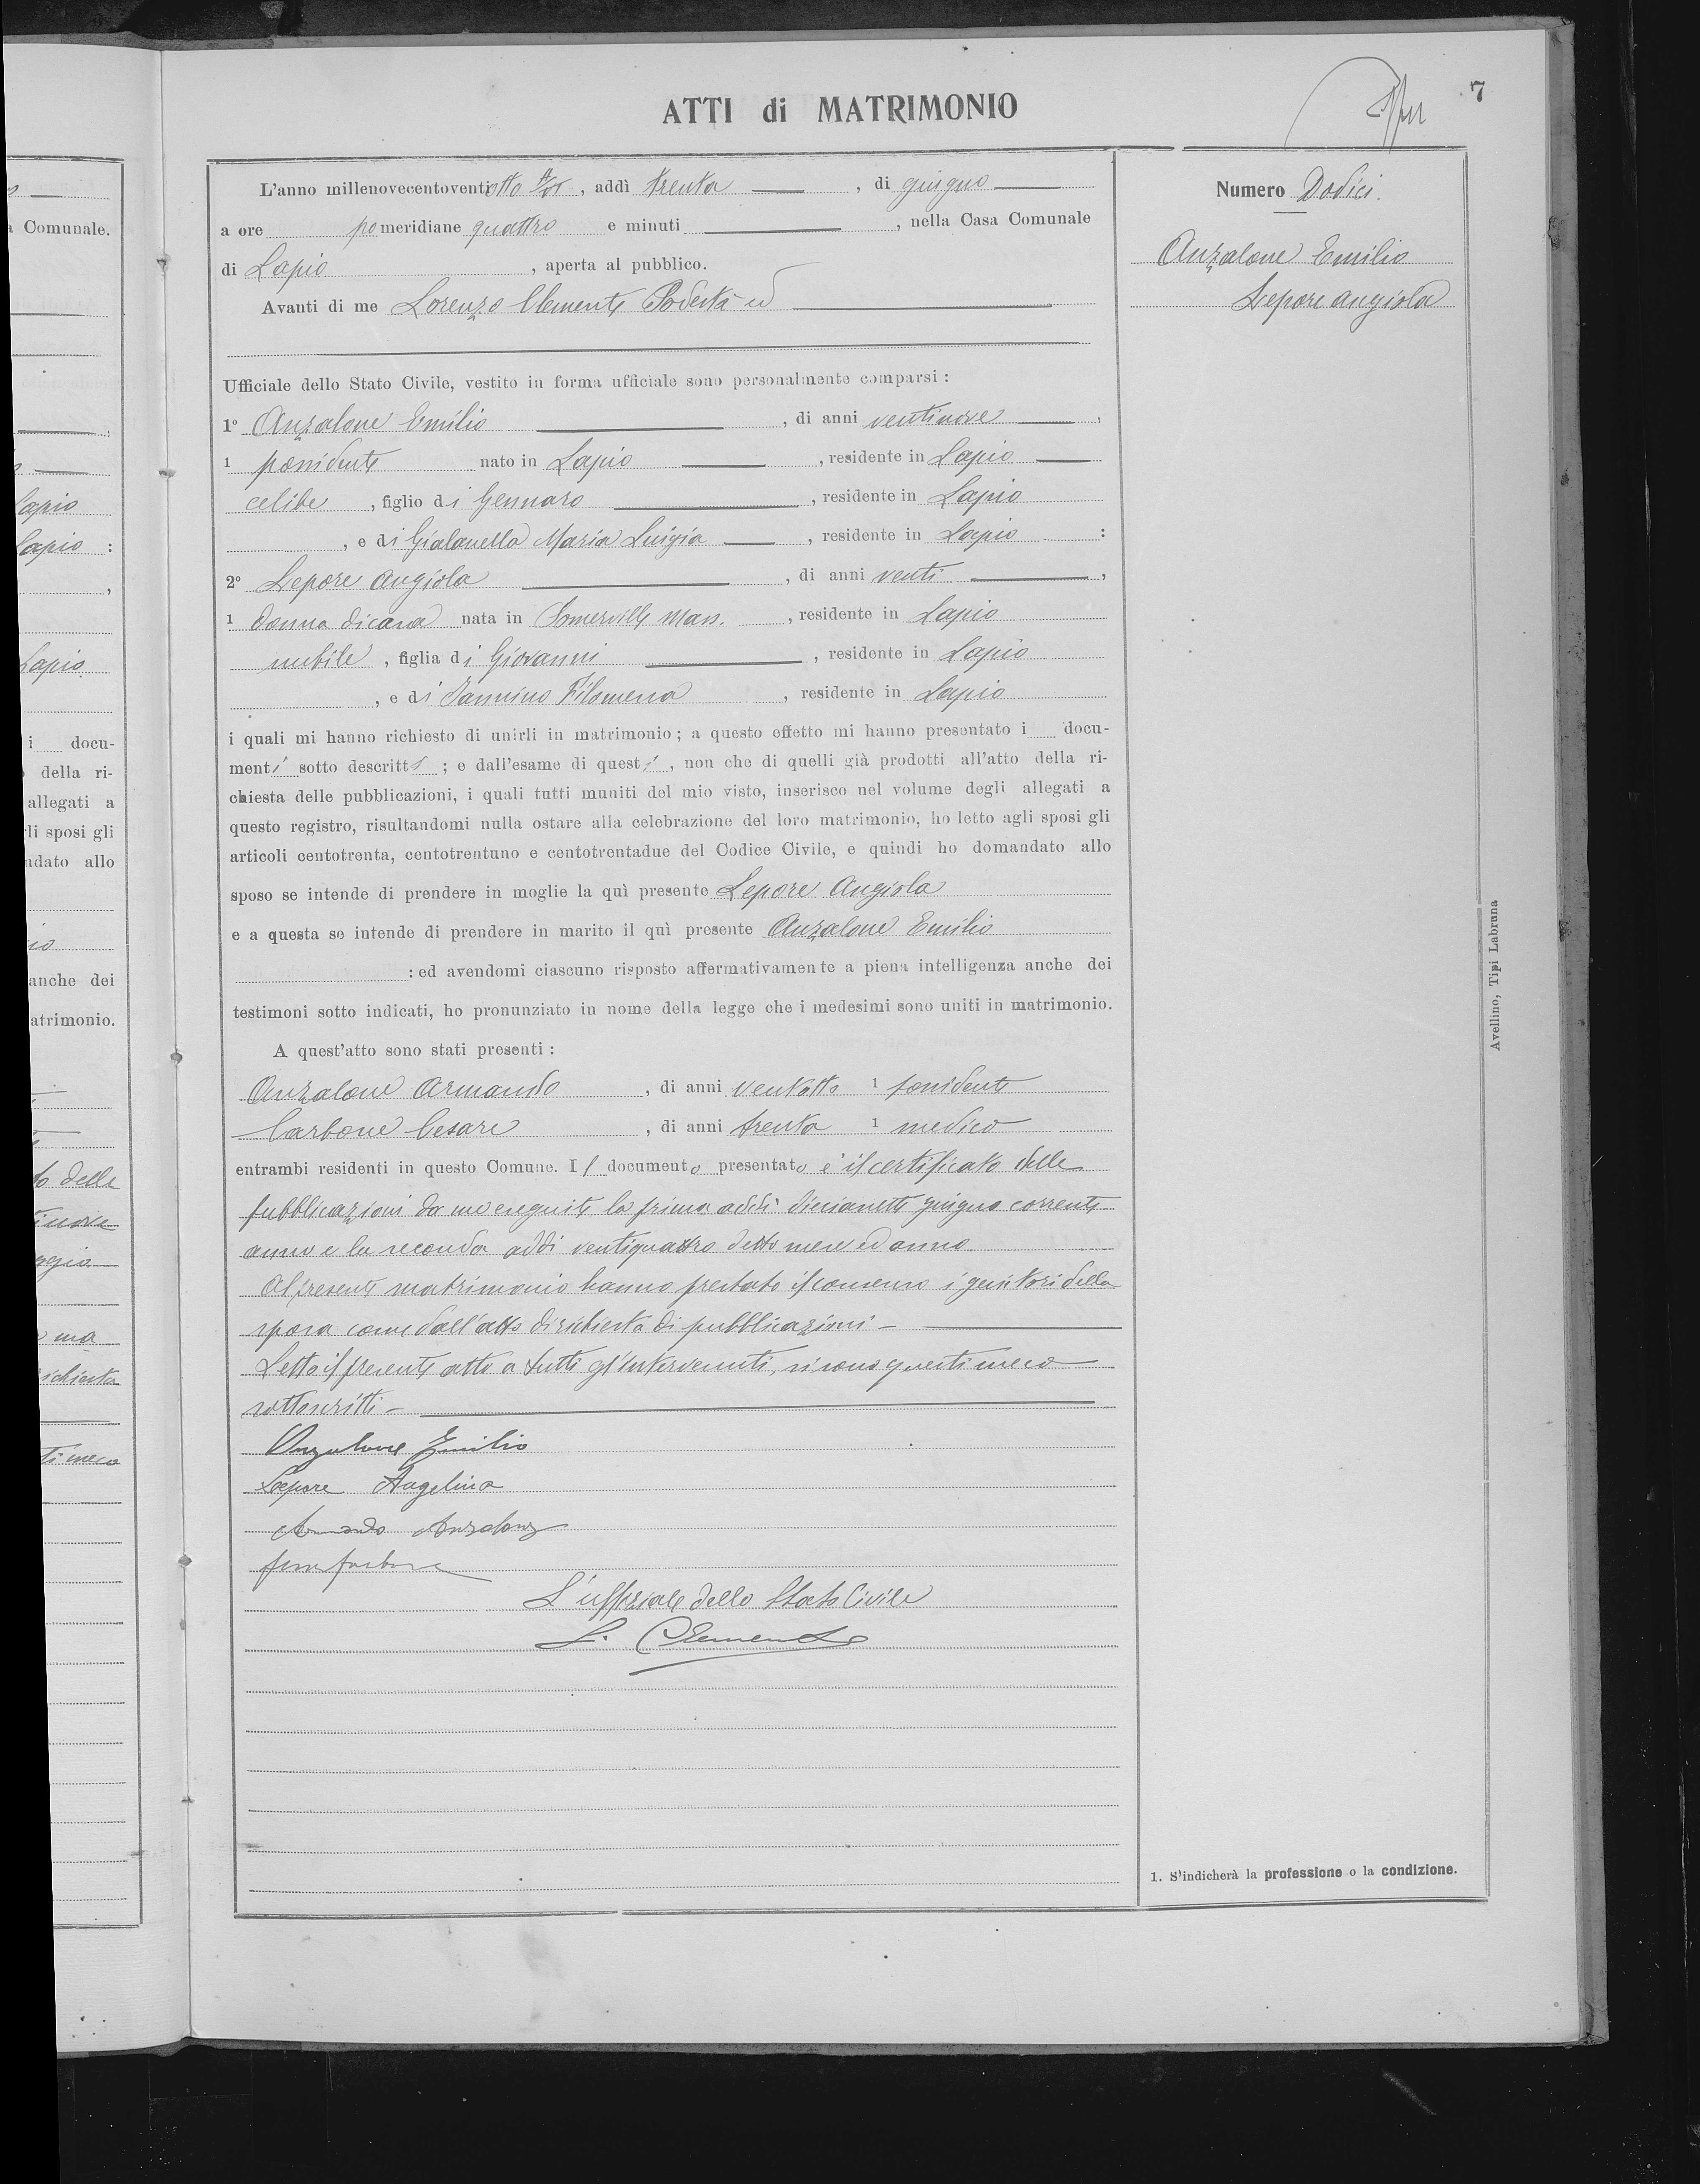 7
ATTI di MATRIMONIO
L'anno millenovecentoventiotto, addì trenta, di giugno
a ore pomeridiane quattro e minuti, nella Casa Comunale
di Lapio, aperta al pubblico.
Avanti di me Lorenzo Clemente Podestà ed
Ufficiale dello Stato Civile, vestito in forma ufficiale sono personalmente comparsi :
1º Anzalone Emilio, di anni ventinove,
1 possidente nato in Lapio, residente in Lapio
celibe, figlio di Gennaro, residente in Lapio
, e di Gialanella Maria Luigia, residente in Lapio :
2º Lepore Angiola, di anni venti,
1 donna di casa nata in Somerville Mass., residente in Lapio
nubile, figlia di Giovanni, residente in Lapio
, e di Iannino Filomena, residente in Lapio
i quali mi hanno richiesto di unirli in matrimonio ; a questo effetto mi hanno presentato i docu-
menti sotto descritti ; e dall'esame di questi, non che di quelli già prodotti all'atto della ri-
chiesta delle pubblicazioni, i quali tutti muniti del mio visto, inserisco nel volume degli allegati a
questo registro, risultandomi nulla ostare alla celebrazione del loro matrimonio, ho letto agli sposi gli
articoli centotrenta, centotrentuno e centotrentadue del Codice Civile, e quindi ho domandato allo
sposo se intende di prendere in moglie la quì presente Lepore Angiola
e a questa se intende di prendere in marito il quì presente Anzalone Emilio
: ed avendomi ciascuno risposto affermativamente a piena intelligenza anche dei
testimoni sotto indicati, ho pronunziato in nome della legge che i medesimi sono uniti in matrimonio.
A quest'atto sono stati presenti :
Anzalone Armando, di anni ventotto 1 possidente
Carbone Cesare, di anni trenta 1 medico
entrambi residenti in questo Comune. Il documento presentato è il certificato delle
pubblicazioni da me eseguite la prima addì diciassette giugno corrente
anno e la seconda addì ventiquattro detto mese ed anno
Al presente matrimonio hanno prestato il consenso i genitori della
sposa come dall'atto di richiesta di pubblicazioni -
Letto il presente atto a tutti gl'intervenuti, si sono questi meco
sottoscritti -
Anzalone Emilio
Lepore Angelina
Armando Anzalone
L'uffiziale dello Stato Civile
L. Clemente
Numero Dodici.
Anzalone Emilio
Lepore Angiola
Avellino, Tipi Labruna
1. S'indicherà la professione o la condizione.
Comunale.
Lapio
Lapio :
Lapio
i docu-
della ri-
allegati a
sposi gli
allo
anche dei
delle
meco